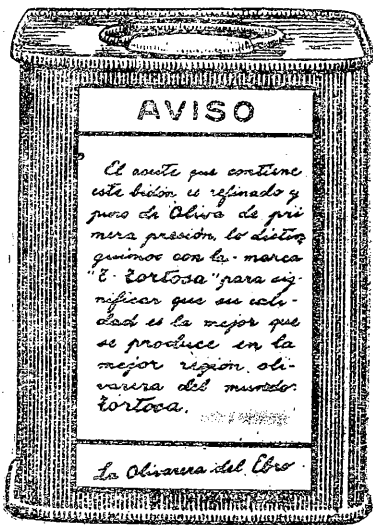 AVISO
El aseite que contiene
este bidón es refinado y
puro de Oliva de pri
mera presión, lo distin
guimos con la marca
"E-Tortosa" para sig-
nificar que su cali-
dad es la mejor que
se produce en la
mejor región oli-
varera del mundo:
Tortosa.
La Olivarera del Ebro